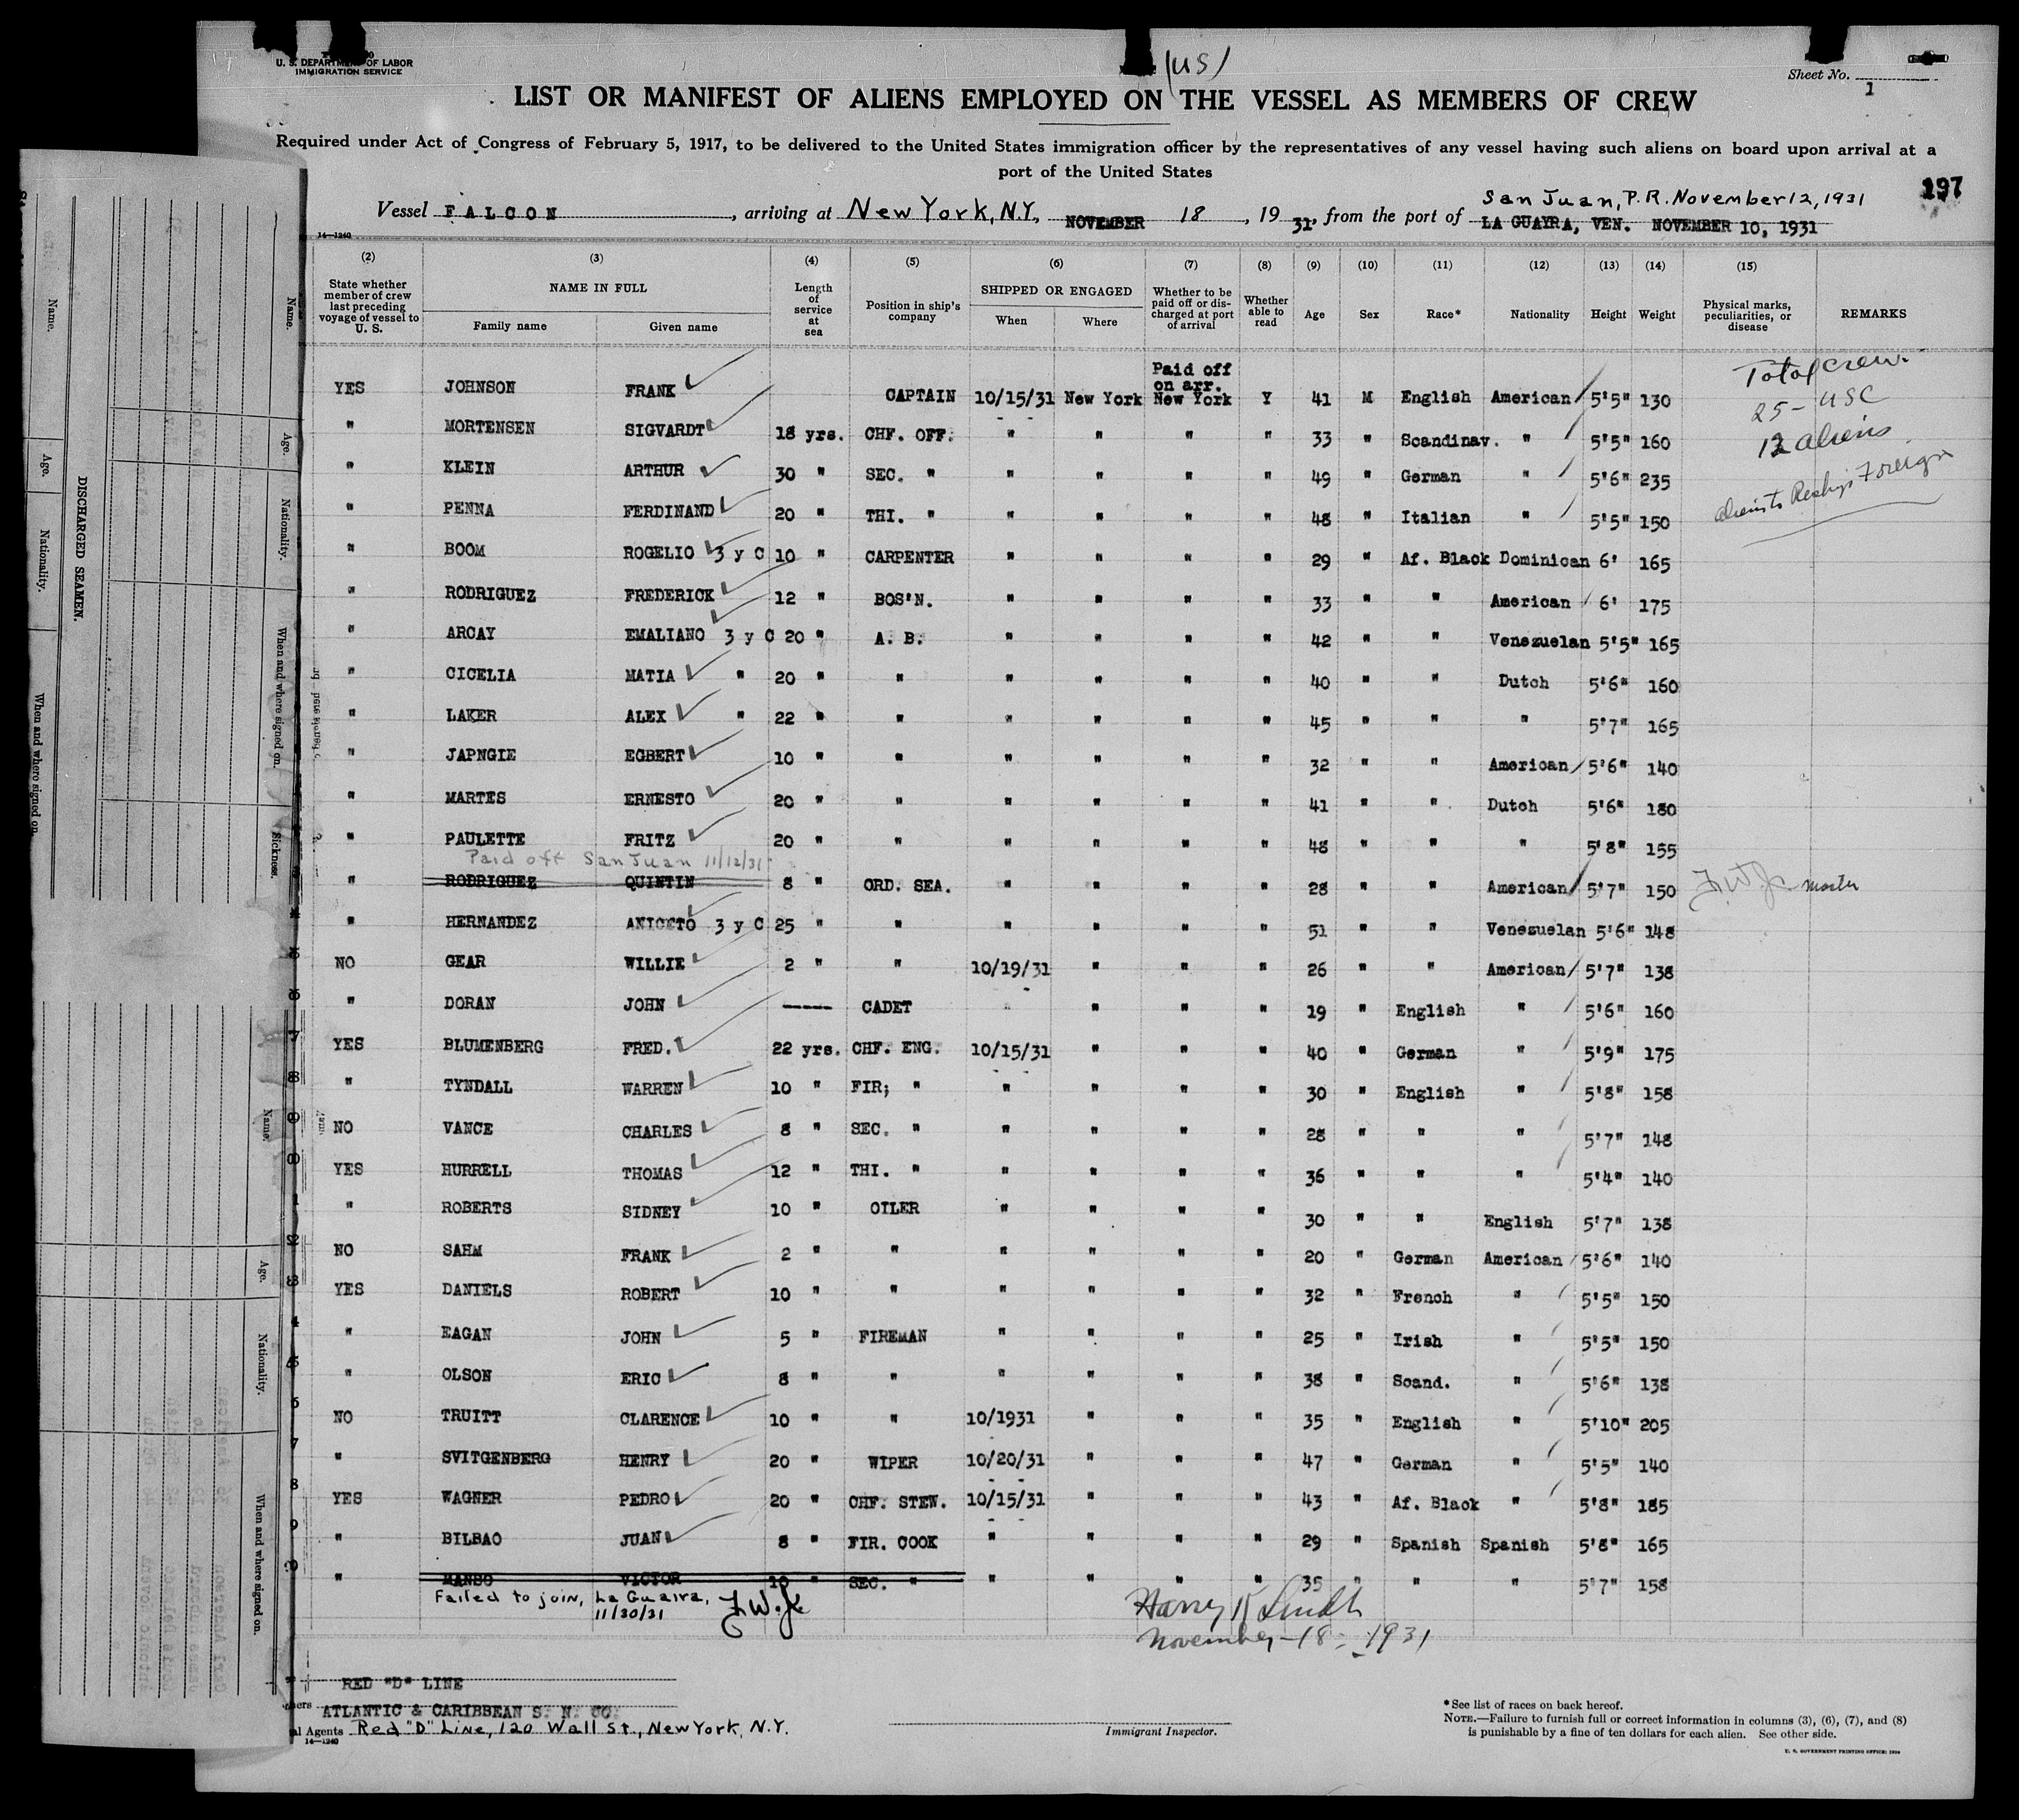 U. S. DEPARTMENT OF LABOR
IMMIGRATION SERVICE
(US)
Sheet No. 1
LIST OR MANIFEST OF ALIENS EMPLOYED ON THE VESSEL AS MEMBERS OF CREW
Required under Act of Congress of February 5, 1917, to be delivered to the United States immigration officer by the representatives of any vessel having such aliens on board upon arrival at a
port of the United States
197
San Juan, P.R. November 12, 1931
Vessel FALCON, arriving at New York, N.Y., NOVEMBER 18, 1931, from the port of LA GUAYRA, VEN. NOVEMBER 10, 1931
14—1240
(2) (3) (4) (5) (6) (7) (8) (9) (10) (11) (12) (13) (14) (15)
State whether member of crew last preceding voyage of vessel to U. S. NAME IN FULL Family name Given name Length of service at sea Position in ship's company SHIPPED OR ENGAGED When Where Whether to be paid off or discharged at port of arrival Whether able to read Age Sex Race* Nationality Height Weight Physical marks, peculiarities, or disease REMARKS
YES JOHNSON FRANK CAPTAIN 10/15/31 New York Paid off on arr. New York Y 41 M English American 5'5" 130
Total crew
25- USC
12 aliens
aliens to Reship Foreign
" MORTENSEN SIGVARDT 18 yrs. CHF. OFF. " " " " 33 " Scandinav. " 5'5" 160
" KLEIN ARTHUR 30 " SEC. " " " " " 49 " German " 5'6" 235
" PENNA FERDINAND 20 " THI. " " " " " 48 " Italian " 5'5" 150
" BOOM ROGELIO 3 y C 10 " CARPENTER " " " " 29 " Af. Black Dominican 6' 165
" RODRIGUEZ FREDERICK 12 " BOS'N. " " " " 33 " " American 6' 175
" ARCAY EMALIANO 3 y C 20 " A. B. " " " " 42 " " Venezuelan 5'5" 165
" CICELIA MATIA " 20 " " " " " " 40 " " Dutch 5'6" 160
" LAKER ALEX " 22 " " " " " " 45 " " " 5'7" 165
" JAPNGIE EGBERT 10 " " " " " " 32 " " American 5'6" 140
" MARTES ERNESTO 20 " " " " " " 41 " " Dutch 5'6" 180
" PAULETTE FRITZ 20 " " " " " " 48 " " " 5'8" 155
Paid off San Juan 11/12/31
" RODRIGUEZ QUINTIN 8 " ORD. SEA. " " " " 28 " " American 5'7" 150 master
" HERNANDEZ ANICETO 3 y C 25 " " " " " " 51 " " Venezuelan 5'6" 148
NO GEAR WILLIE 2 " " 10/19/31 " " " 26 " " American 5'7" 138
" DORAN JOHN —— CADET " " " " 19 " English " 5'6" 160
YES BLUMENBERG FRED. 22 yrs. CHF. ENG. 10/15/31 " " " 40 " German " 5'9" 175
" TYNDALL WARREN 10 " FIR; " " " " " 30 " English " 5'8" 158
NO VANCE CHARLES 8 " SEC. " " " " " 28 " " " 5'7" 148
YES HURRELL THOMAS 12 " THI. " " " " " 36 " " " 5'4" 140
" ROBERTS SIDNEY 10 " OILER " " " " 30 " " English 5'7" 138
NO SAHM FRANK 2 " " " " " " 20 " German American 5'6" 140
YES DANIELS ROBERT 10 " " " " " " 32 " French " 5'5" 150
" EAGAN JOHN 5 " FIREMAN " " " " 25 " Irish " 5'5" 150
" OLSON ERIC 8 " " " " " " 38 " Scand. " 5'6" 138
NO TRUITT CLARENCE 10 " " 10/1931 " " " 35 " English " 5'10" 205
" SVITGENBERG HENRY 20 " WIPER 10/20/31 " " " 47 " German " 5'5" 140
YES WAGNER PEDRO 20 " CHF. STEW. 10/15/31 " " " 43 " Af. Black " 5'8" 185
" BILBAO JUAN 8 " FIR. COOK " " " " 29 " Spanish Spanish 5'8" 165
" MANSO VICTOR 10 " SEC. " " " " " 35 " " " 5'7" 158
Failed to join, La Guaira,
11/30/31
Harry
November - 18 - 1931
RED "D" LINE
ATLANTIC & CARIBBEAN S. N. CO.
Agents Red "D" Line, 120 Wall St., New York, N.Y.
14—1240
Immigrant Inspector.
*See list of races on back hereof.
NOTE.—Failure to furnish full or correct information in columns (3), (6), (7), and (8)
is punishable by a fine of ten dollars for each alien. See other side.
U. S. GOVERNMENT PRINTING OFFICE
DISCHARGED SEAMEN.
Name. Age. Nationality. When and where signed on.
Name. Age. Nationality. When and where signed on. Sickness.
Name. Age. Nationality. When and where signed on.